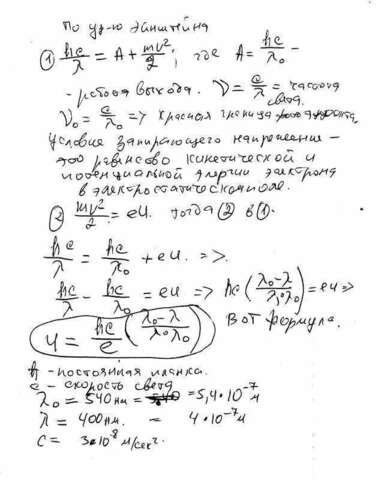 По ур-ю Эйнштейна
① hc/λ = A + mv²/2; где A = hc/λ₀ –
– работа выхода. ν = c/λ = частота
света.
ν₀ = c/λ₀ => красная граница
Условие запирающего напряжение –
это равенсво кинетической и
потенциальной энергии электрона
в электростатическом поле.
② mv²/2 = eU. тогда ② в ①.
hc/λ = hc/λ₀ + eU =>.
hc/λ - hc/λ₀ = eU => hc (λ₀ - λ / λ·λ₀) = eU =>
U = hc/e (λ₀ - λ / λ·λ₀) Вот формула.
h - постоянная планка.
c - скорость света
λ₀ = 540 нм = = 5,4·10⁻⁷ м
λ = 400 нм. = 4·10⁻⁷ м
c = 3·10⁻⁸ м/сек².